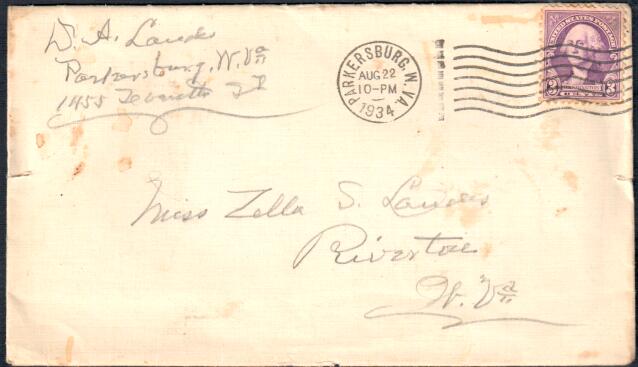 D. A. Landes
Parkersburg, W. Va
1455 St
PARKERSBURG, W. VA.
AUG 22
10-PM
1934
UNITED STATES POSTAGE
3 3
CENTS
Miss Zella S. Landes
Riverton
W. Va